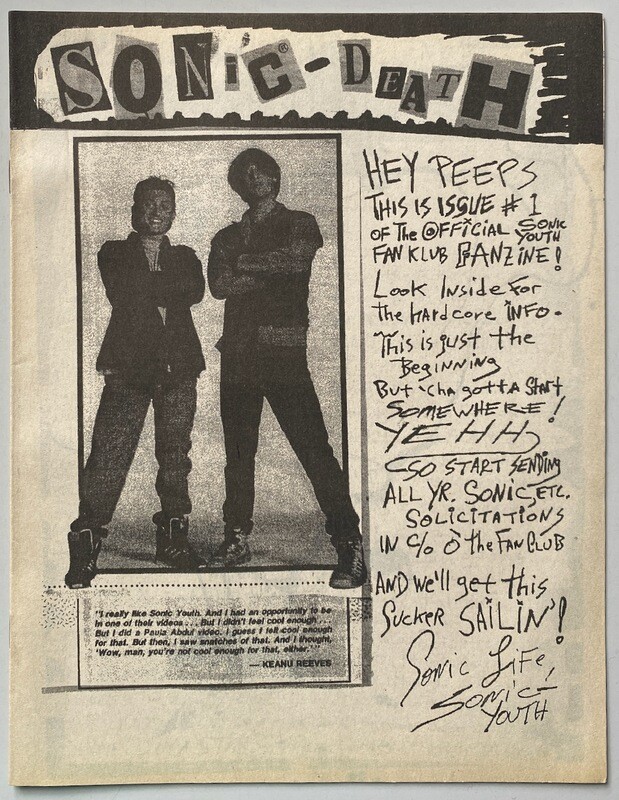 SONiC®-DEATH
HEY PEEPS
THIS IS ISSUE # 1
OF THe OFFiCiAL SONiC YOUTH
FAN KLUB FANZiNE!
Look Inside for
the HARDcore iNFO.
This is just the
Beginning
But 'cha gotta Start
SOMEWHERE!
YEHH,
SO START SENDiNg
ALL YR. SONiC, ETC.
SOLICITATIONS
IN C/o O the FAN CLUB
AND we'll get this
Sucker SAILIN'!
Sonic Life,
Sonic-
YOUTH
"I really like Sonic Youth. And I had an opportunity to be
in one of their videos . . . But I didn't feel cool enough . . .
But I did a Paula Abdul video. I guess I felt cool enough
for that. But then, I saw snatches of that. And I thought,
'Wow, man, you're not cool enough for that, either.' "
— KEANU REEVES